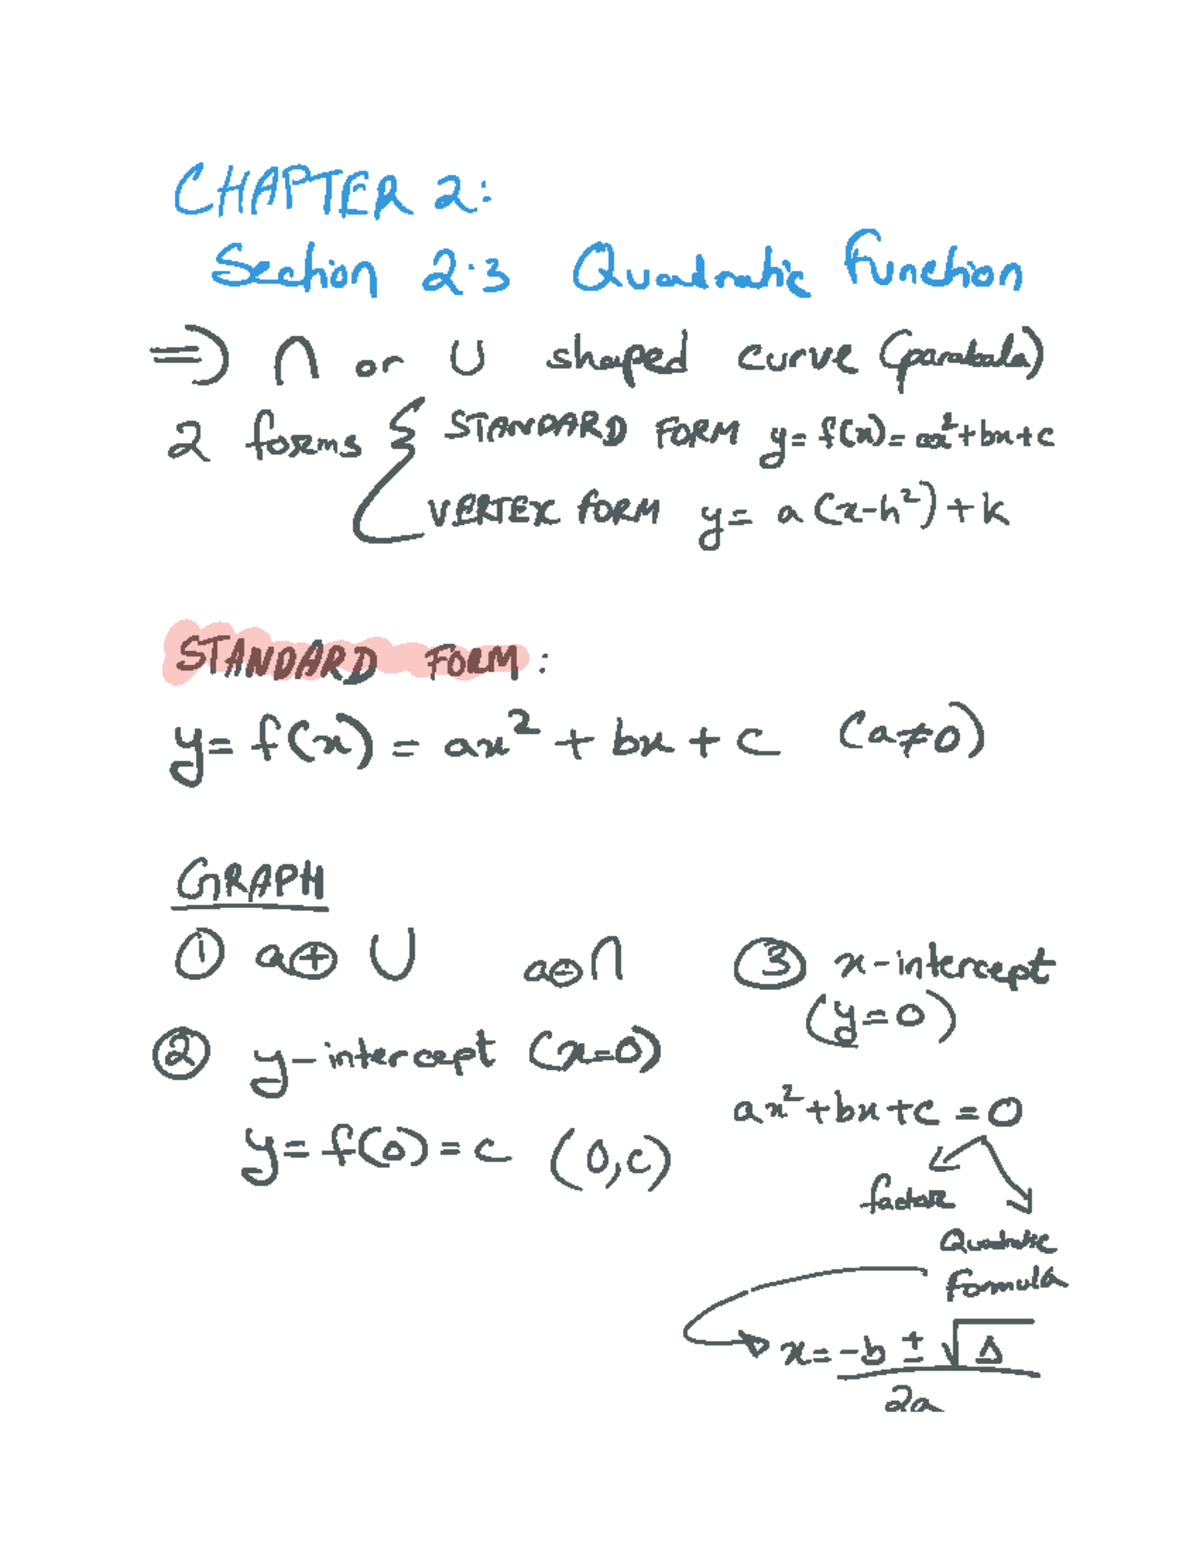 CHAPTER 2:
Section 2.3 Quadratic Function
⇒ ∩ or ∪ shaped curve (parabala)
2 forms { STANDARD FORM y = f(x) = ax²+bx+c
VERTEX FORM y = a (x-h²)+k
STANDARD FORM :
y = f(x) = ax² + bx + c (a≠0)
GRAPH
① a⊕ ∪ a⊖ ∩
② y-intercept (x=0)
y = f(0) = c (0,c)
③ x-intercept
(y=0)
ax²+bx+c = 0
factor
Quadratic
formula
x = -b ± √Δ
2a